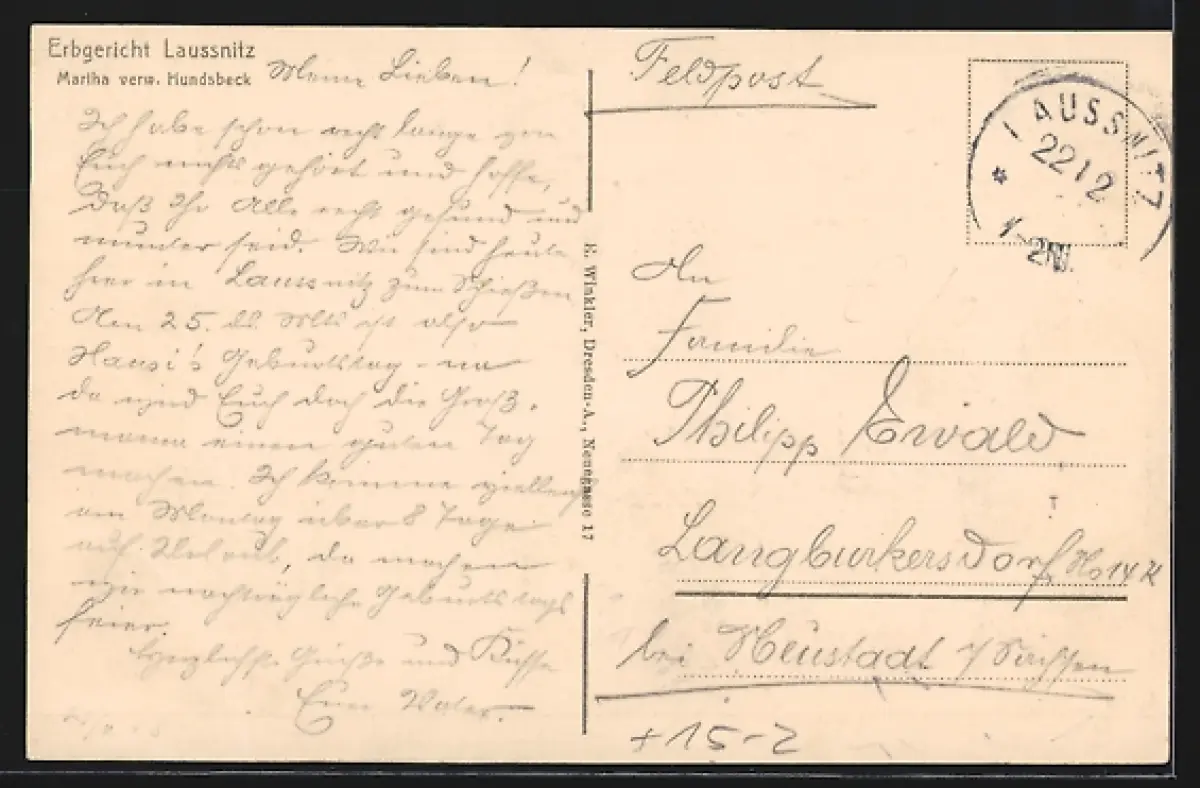 Erbgericht Laussnitz
Martha verw. Hundsbeck
Meine Lieben!
Ich habe schon recht lange von
Euch nichts gehört und hoffe,
daß Ihr Alle recht gesund und
munter seid. Wir sind heute
hier in Laussnitz zum Schießen
Am 25. ds. Mts ist also
Hansi's Geburtstag - na
da wird Euch doch die Groß-
mama einen guten Tag
machen. Ich komme
am Montag über 8 Tage
auf Urlaub, da machen
wir nachträgliche Geburtstags
feier.
Herzlichste Grüße und Küsse
Euer Vater.
E. Winkler, Dresden-A., Neuegasse 17
Feldpost
LAUSSNITZ
2212
1-2N.
An
Familie
Philipp Ewald
Langburkersdorf
bei Neustadt i/Sachsen
+15-2